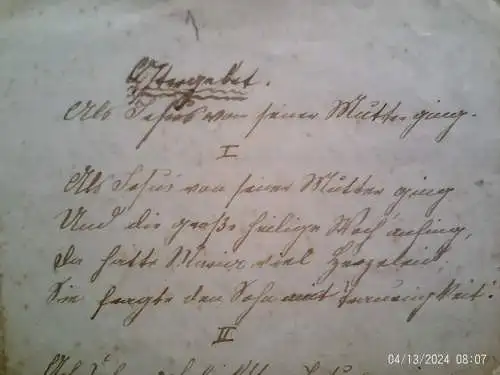 Ostergebet.
Als Jesus von seiner Mutter ging.
I
Als Jesus von seiner Mutter ging
Und die große heilige Woch' anfing,
Da hatte Maria viel Herzeleid,
Sie fragte den Sohn mit Traurigkeit:
II
04/13/2024 08:07